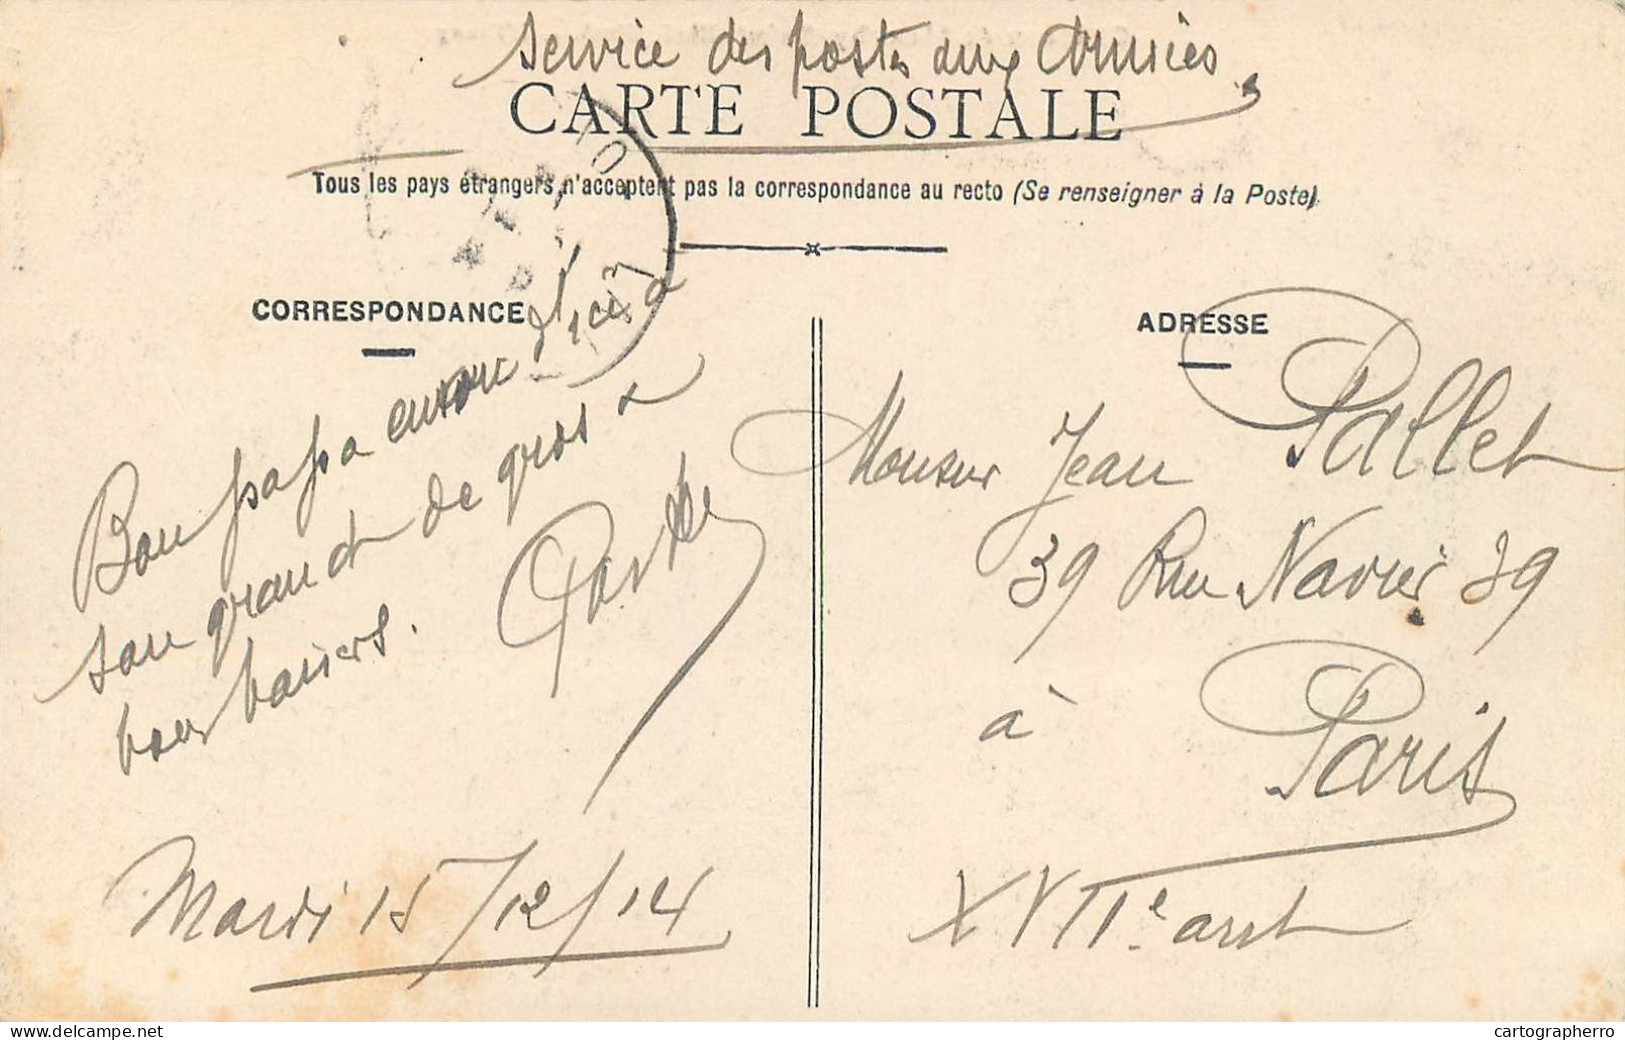 Service des postes aux Armées
CARTE POSTALE
Tous les pays étrangers n'acceptent pas la correspondance au recto (Se renseigner à la Poste)
CORRESPONDANCE
Bon papa envoie d'ici à
son grand de gros et
bons baisers.
Mardi 15/12/14
ADRESSE
Monsieur Jean Pallet
39 Rue Navier 39
à
Paris
XVIIe arrt
www.delcampe.net
cartographerro